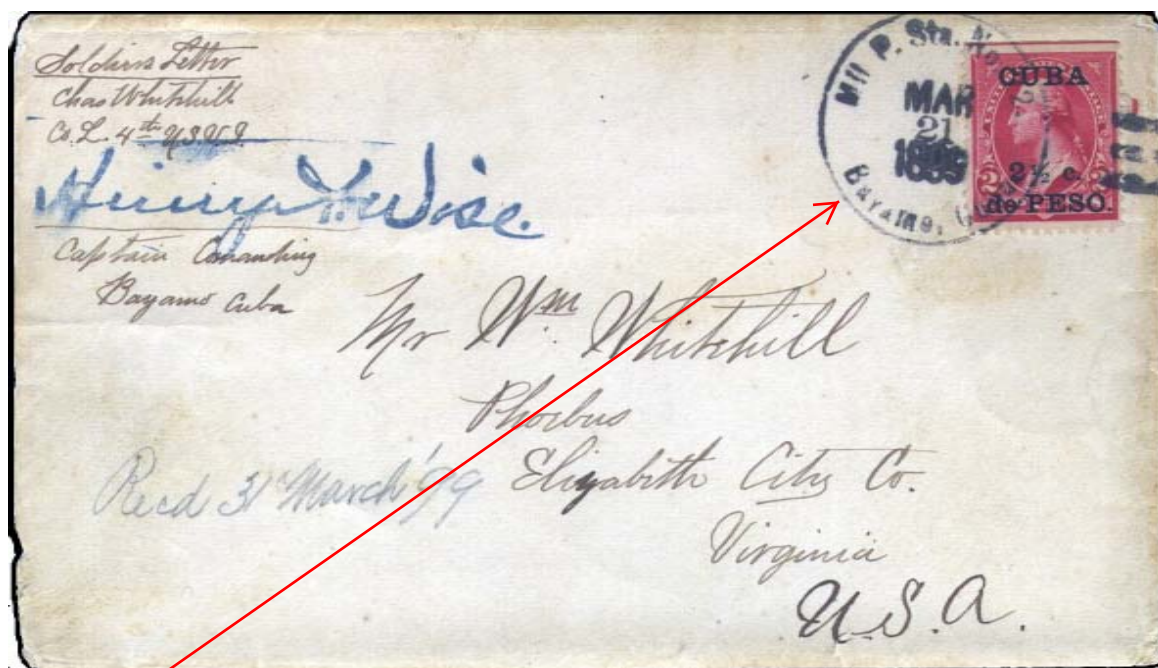 Soldiers Letter
Chas Whitehill
Co. L. 4th U.S.V.I.
Henry Wise.
Captain Comanding
Bayamo Cuba
Mil P. Sta. No
MAR
21
1899
Bayamo,
CUBA
2½ c.
de PESO.
2 2
Mr Wm Whitehill
Phoebus
Elizabeth City Co.
Virginia
U.S.A.
Recd 31 March '99